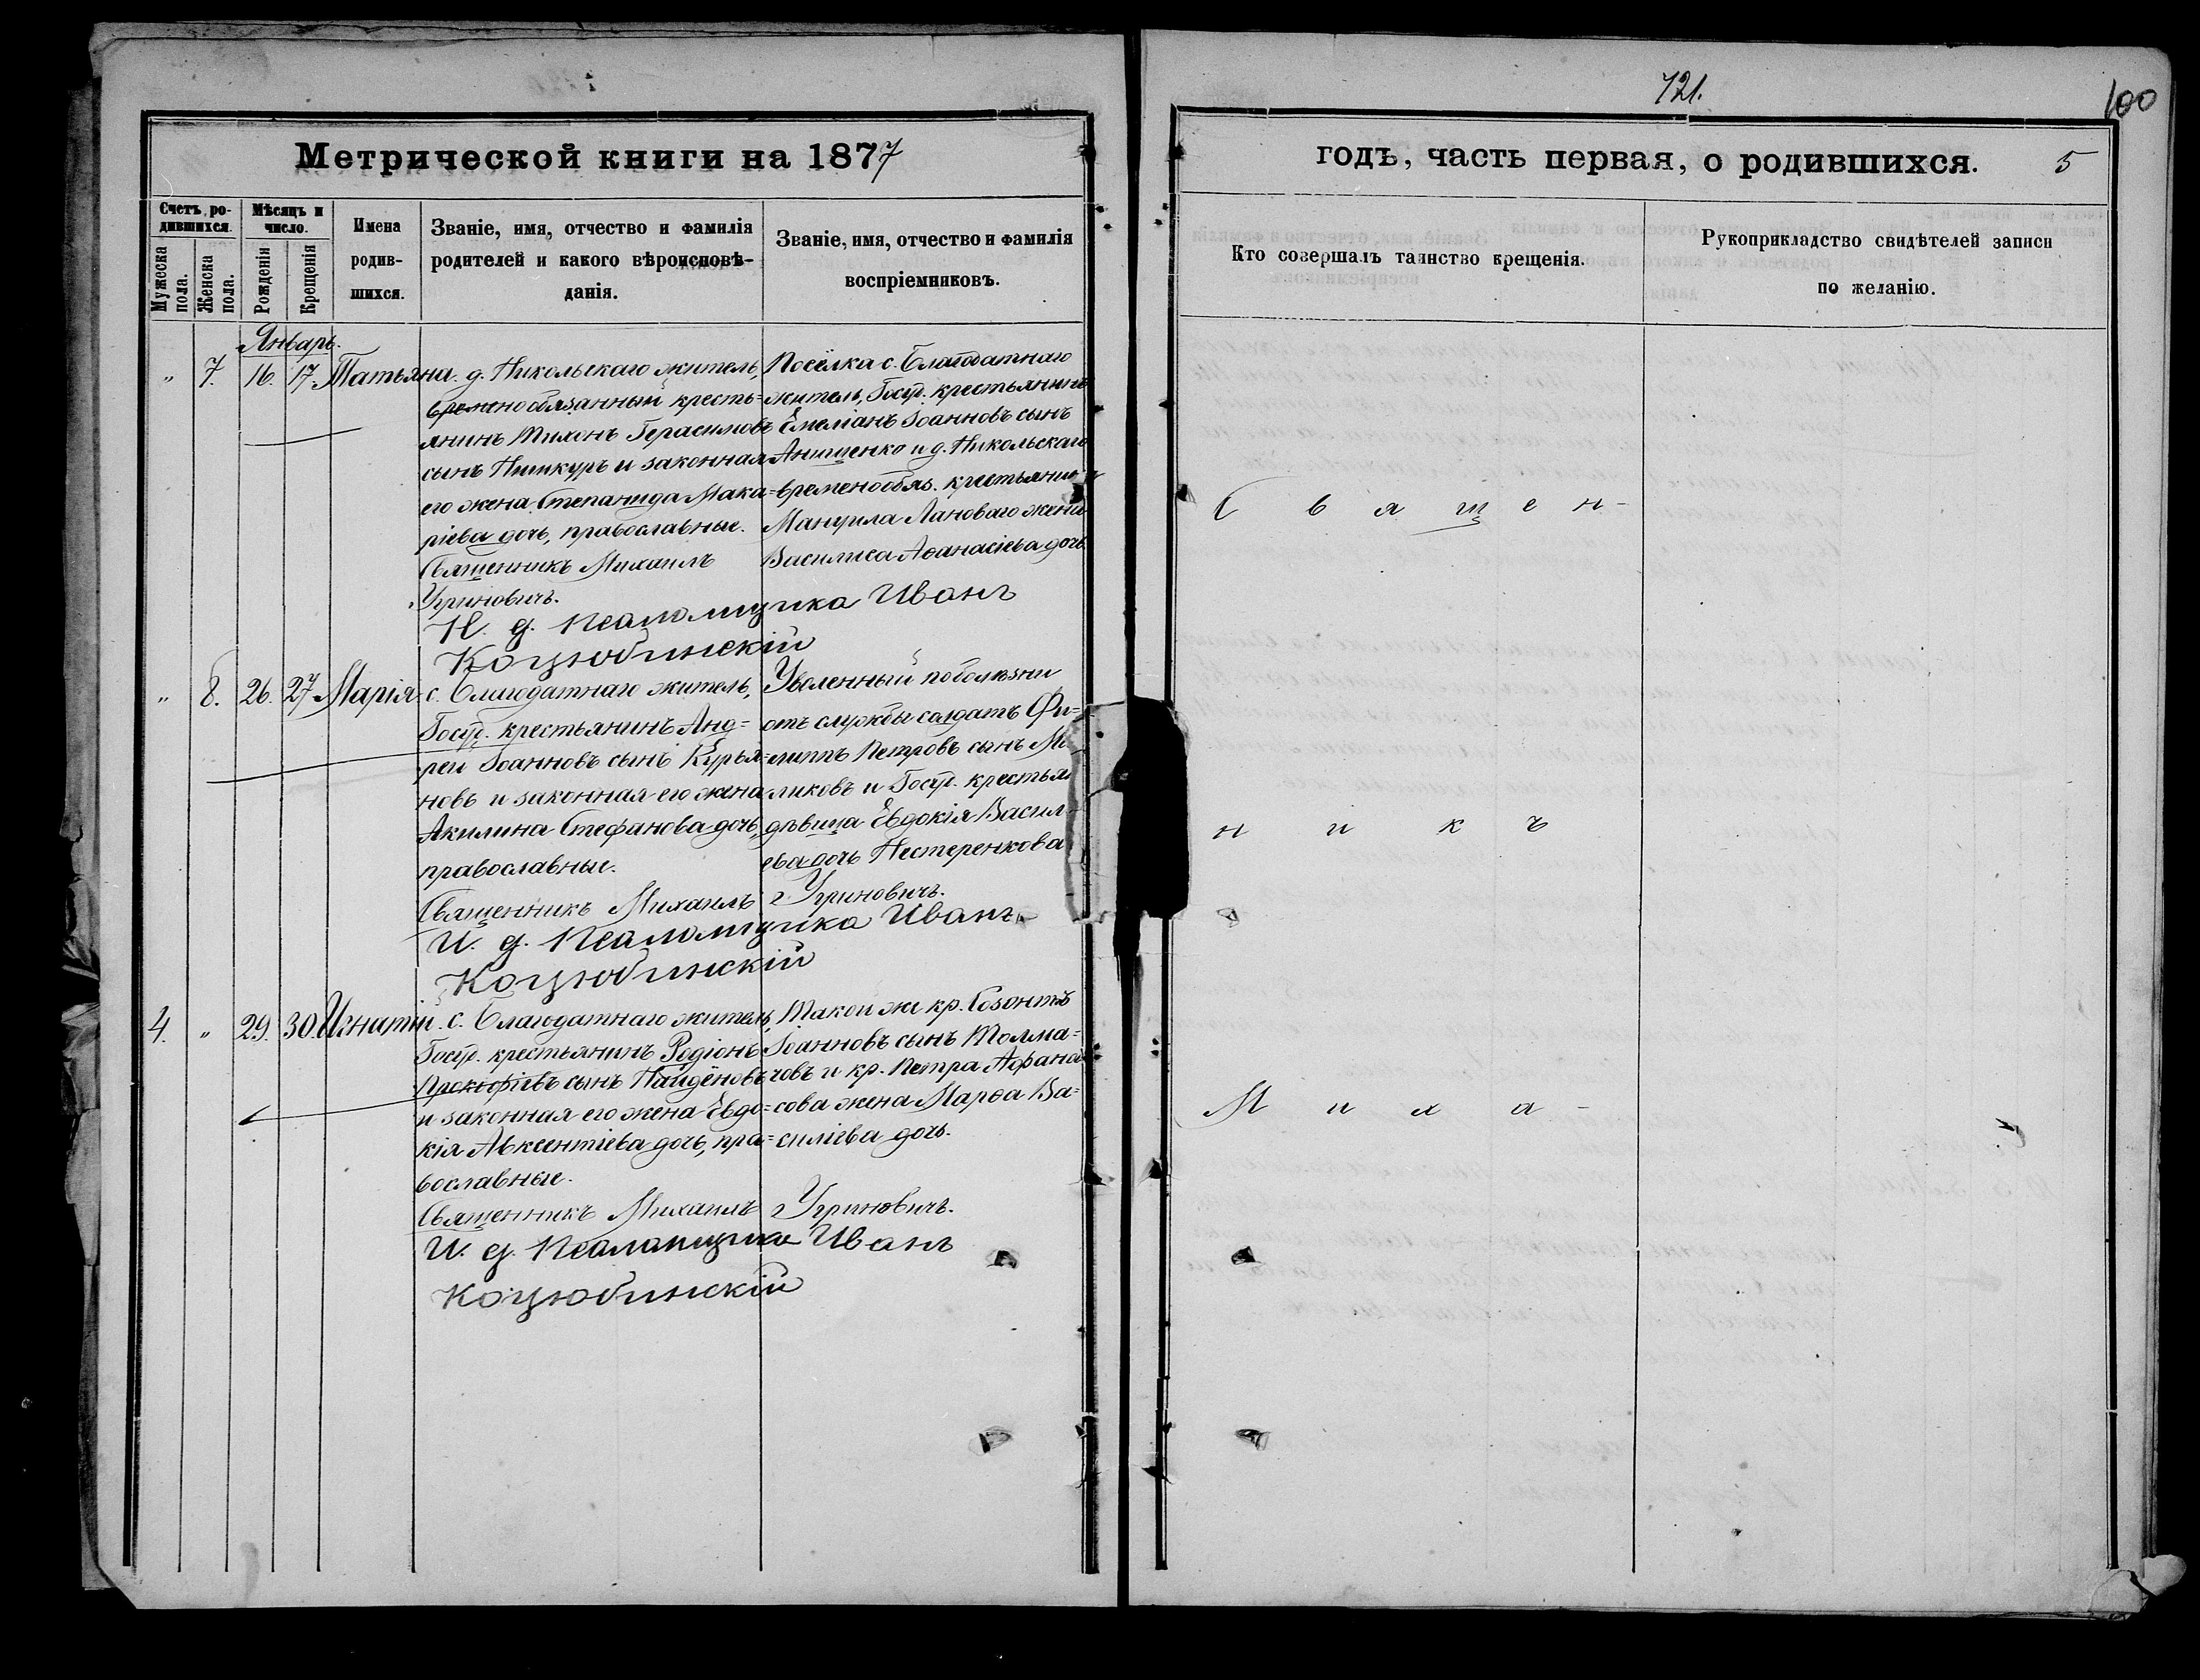 721.
100
Метрической книги на 1877
годъ, часть первая, о родившихся. 5
Счетъ ро-
дившихся.
Мужеска
пола.
Женска
пола.
Мѣсяцъ и
число.
Рожденія
Крещенія
Имена
родив-
шихся.
Званіе, имя, отчество и фамилія
родителей и какого вѣроисповѣ-
данія.
Званіе, имя, отчество и фамилія
воспріемниковъ.
Кто совершалъ таинство крещенія.
Рукоприкладство свидѣтелей записи
по желанію.
Январь.
" 7. 16. 17. Татьяна.
д. Никольскаго житель,
временообязанный кресть=
янинъ Тихонъ Герасимовъ
сынъ Пишкуръ и законная
его жена Степанида Мака=
ріева дочь, православные.
Священникъ Михаилъ
Угриновичъ.
И. д. Псаломщика Иванъ
Коцюбинскій
Посёлка с. Благодатнаго
житель, Госуд. крестьянинъ
Емеліанъ Іоанновъ сынъ
Анищенко и д. Никольскаго
временообяз. крестьянина
Мануила Лановаго жена
Василиса Аѳанасіева дочь.
" 8. 26. 27. Марія
с. Благодатнаго житель,
Госуд. крестьянинъ Анд=
рей Іоанновъ сынъ Курья=
новъ и законная его жена
Акилина Стефанова дочь,
православные.
Священникъ Михаилъ Угриновичъ.
И. д. Псаломщика Иванъ
Коцюбинскій
Уволенный по болѣзни
отъ службы солдатъ Фи=
липпъ Петровъ сынъ
ликовъ и Госуд. крестьян
дѣвица Евдокія Васил-
ева дочь Нестеренкова
4. " 29. 30. Игнатій.
с. Благодатнаго житель,
Госуд. крестьянинъ Родіонъ
Прокофіевъ сынъ Найдёновъ
и законная его жена Евдо=
кія Авксентіева дочь, пра=
вославные.
Священникъ Михаилъ Угриновичъ.
И. д. Псаломщика Иванъ
Коцюбинскій
Такой же кр. Созонтъ
Іоанновъ сынъ Толма=
човъ и кр. Петра Афана
сова жена Марѳа Ва=
силіева дочь.
С в я щ е н -
н и к ъ
М и х а -